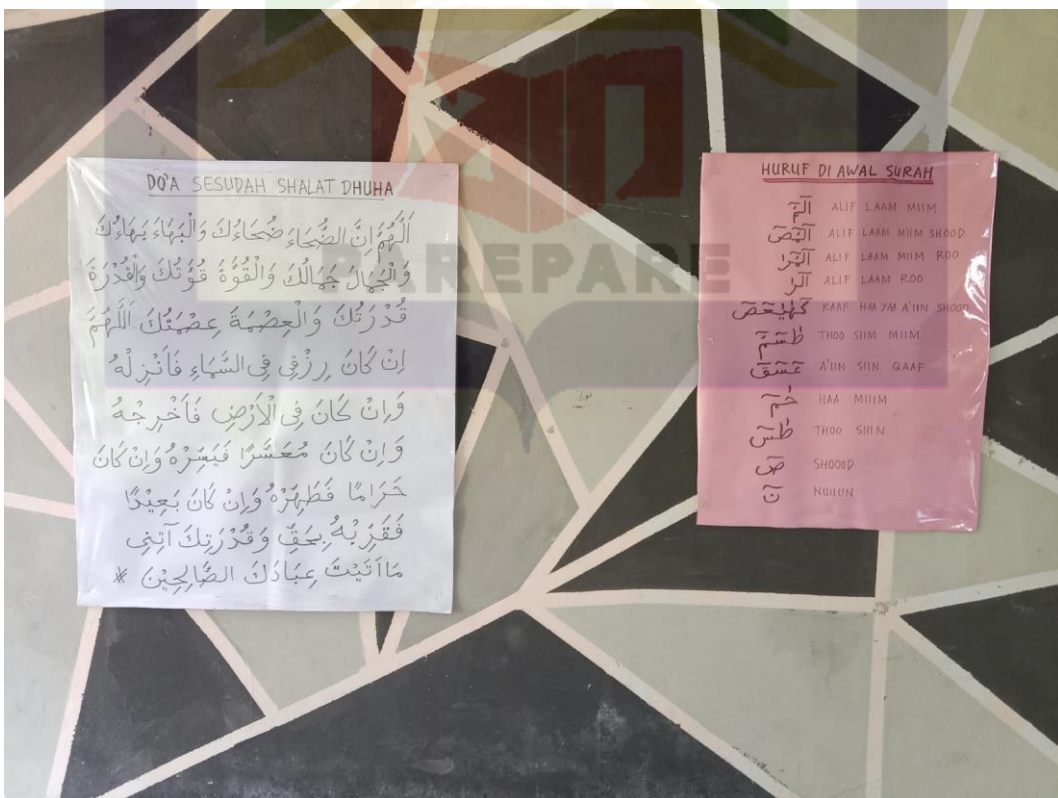 DO'A SESUDAH SHALAT DHUHA
اَللّٰهُمَّ اِنَّ الضُّحَاءَ ضُحَاءُكَ وَالْبَهَاءَ بَهَاءُكَ
وَالْجَمَالَ جَمَالُكَ وَالْقُوَّةَ قُوَّتُكَ وَالْقُدْرَةَ
قُدْرَتُكَ وَالْعِصْمَةَ عِصْمَتُكَ اَللّٰهُمَّ
اِنْ كَانَ رِزْقِى فِى السَّمَاءِ فَاَنْزِلْهُ
وَاِنْ كَانَ فِى الْاَرْضِ فَاَخْرِجْهُ
وَاِنْ كَانَ مُعَسَّرًا فَيَسِّرْهُ وَاِنْ كَانَ
حَرَامًا فَطَهِّرْهُ وَاِنْ كَانَ بَعِيْدًا
فَقَرِّبْهُ بِحَقِّ وَقُدْرَتِكَ آتِنِى
مَااَتَيْتَ عِبَادَكَ الصَّالِحِيْنَ *
HURUF DI AWAL SURAH
الٓمٓ ALIF LAAM MIIM
الٓمٓصٓ ALIF LAAM MIIM SHOOD
الٓمٓرٰ ALIF LAAM MIIM ROO
الٓرٰ ALIF LAAM ROO
كٓهٰيٰعٓصٓ KAAF HAA YAA A'IIN SHOOD
طٰسٓمٓ THOO SIIM MIIM
عٓسٓقٓ A'IIN SIIN QAAF
حٰمٓ HAA MIIIM
طٰسٓ THOO SIIIN
صٓ SHOOOD
نٓ NUUUN
PAREPARE